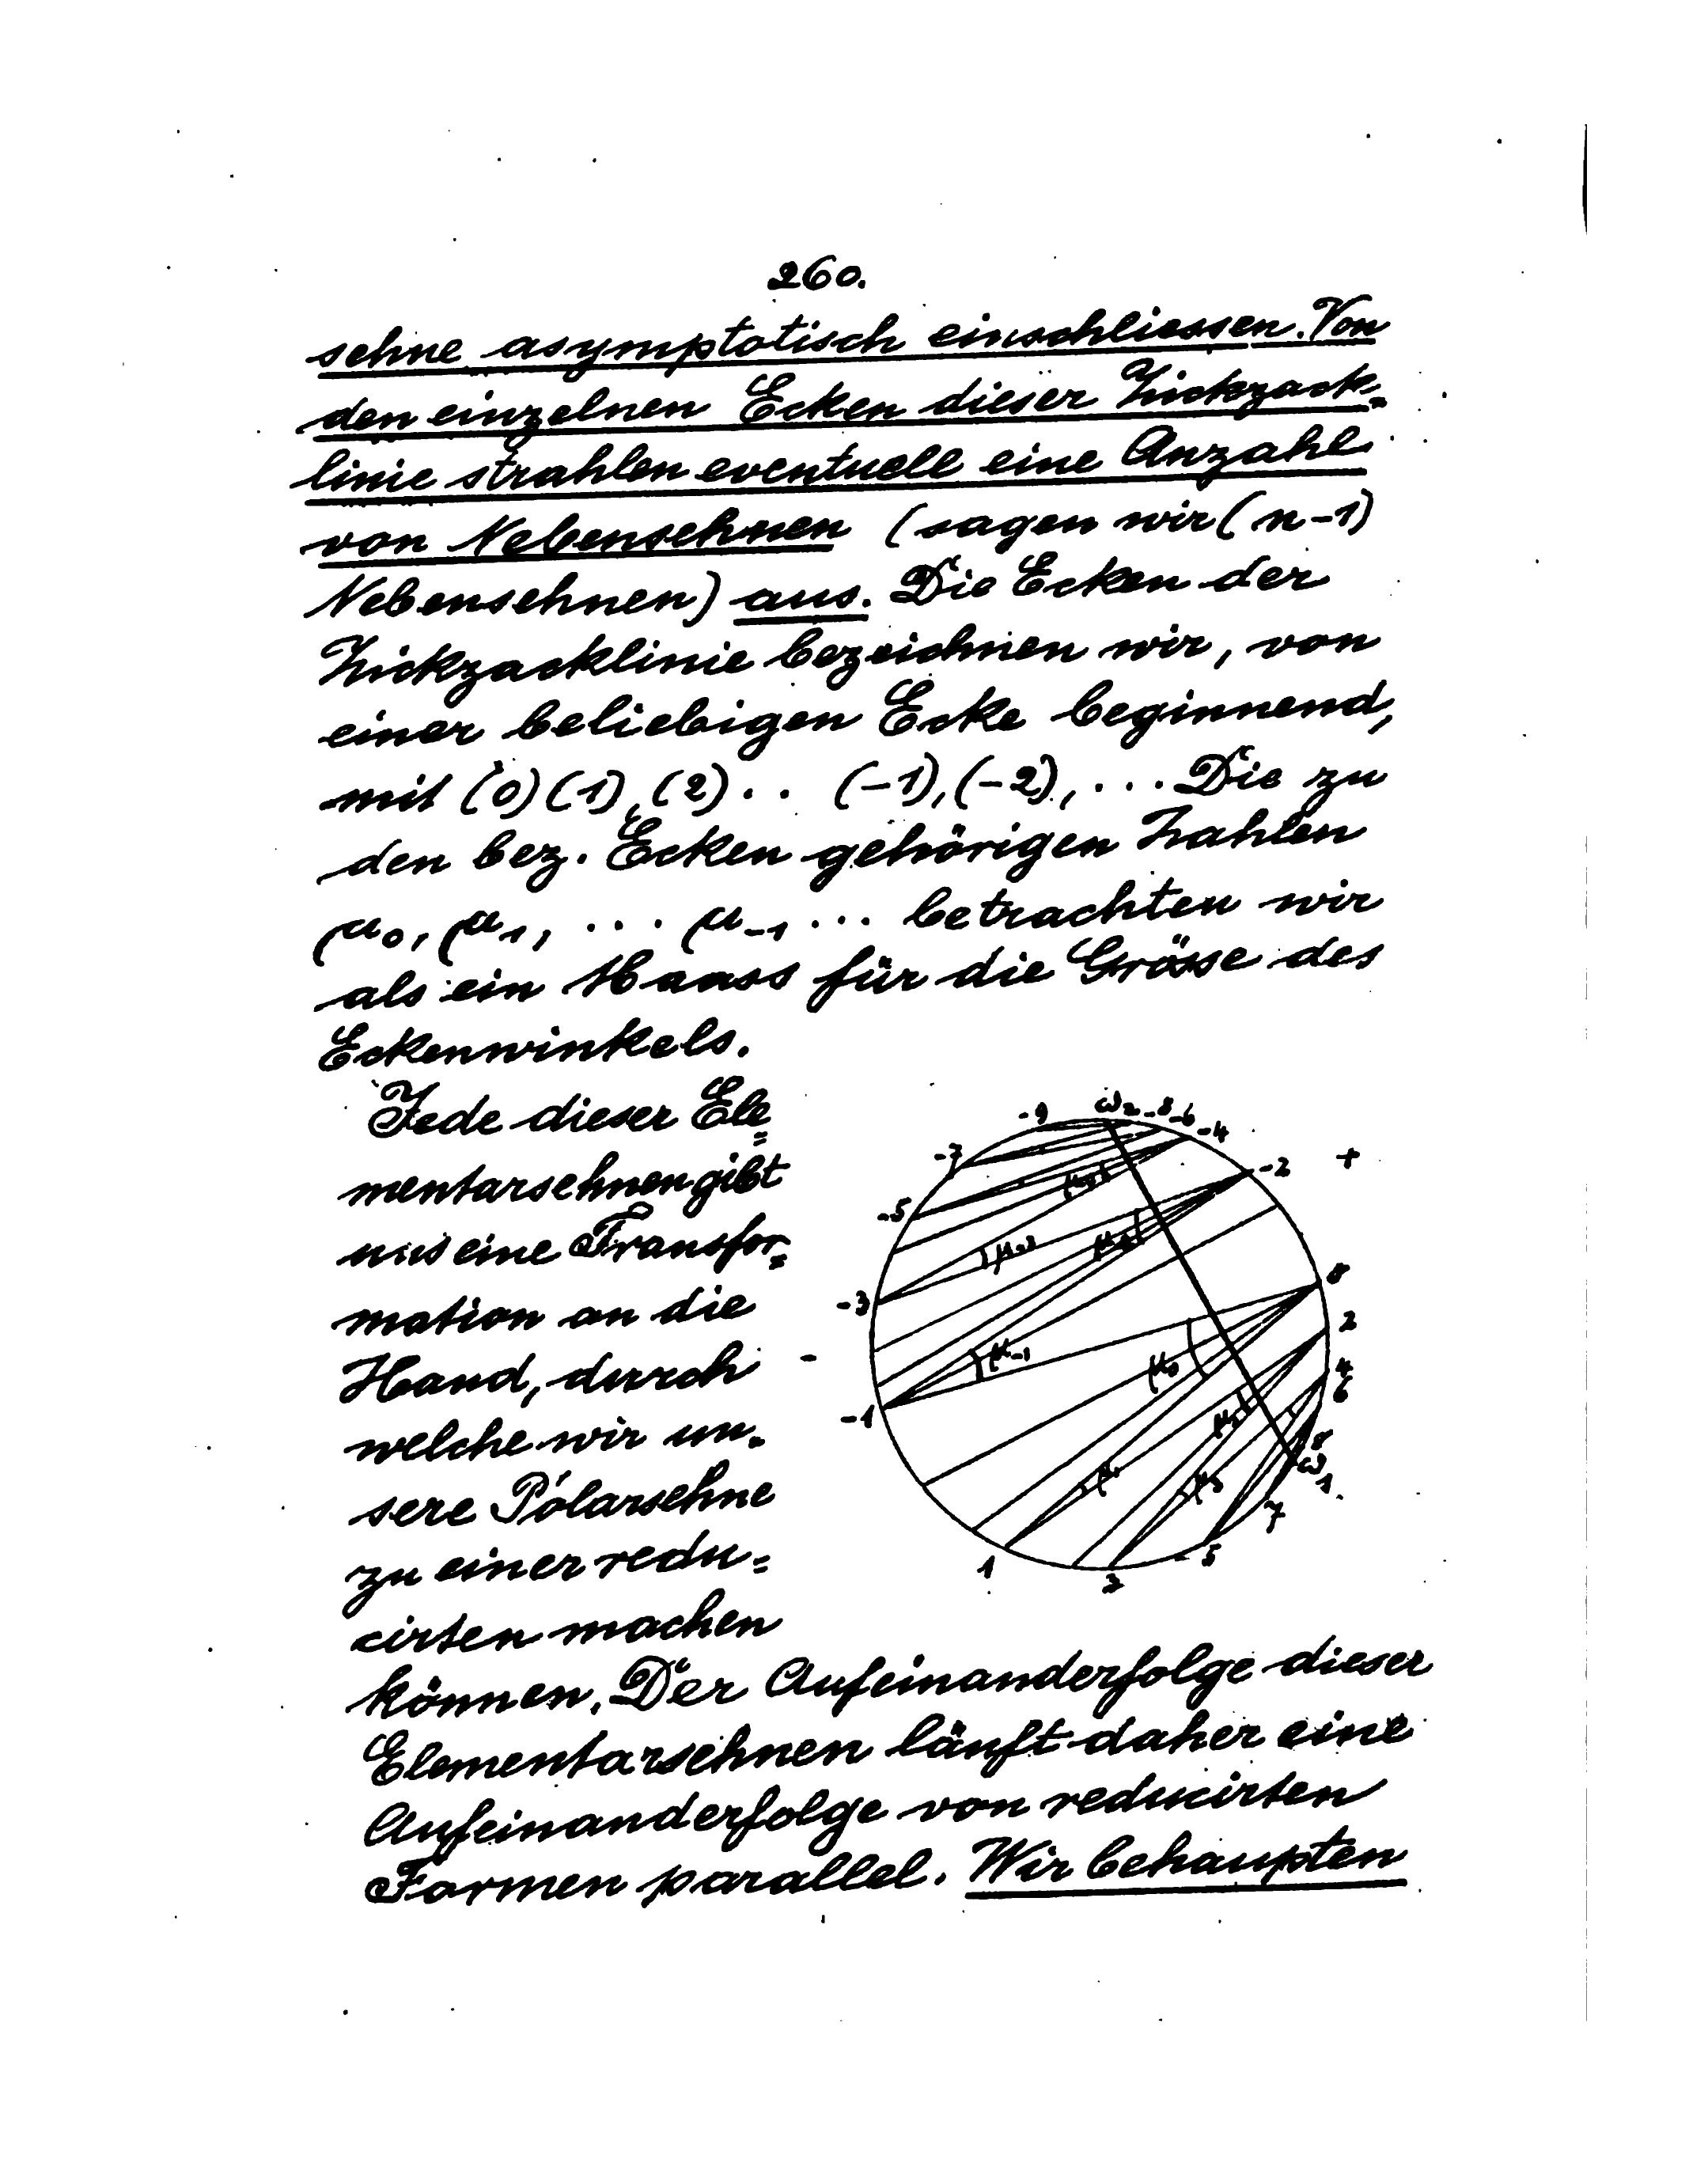 260.
sehne asymptotisch einschliessen. Von
den einzelnen Ecken dieser Zickzack-
linie strahlen eventuell eine Anzahl
von Nebensehnen (sagen wir (n-1)
Nebensehnen) aus. Die Ecken der
Zickzacklinie bezeichnen wir, von
einer beliebigen Ecke beginnend,
mit (0) (1), (2) .. (-1), (-2), ... Die zu
den bez. Ecken gehörigen Zahlen
μ₀, μ₁, ... μ₋₁ ... betrachten wir
als ein Maass für die Grösse des
Eckenwinkels.
Jede dieser Ele=
mentarsehnen gibt
uns eine Transfor=
mation an die
Hand, durch
welche wir un-
sere Polarsehne
zu einer redu=
cirten machen
können. Der Aufeinanderfolge dieser
Elementarsehnen läuft daher eine
Aufeinanderfolge von reducirten
Formen parallel. Wir behaupten
-9 ω₂ -8 -6 -4
-7 -2 +
-5
-3 0
μ₋₁ μ₀ 2
- 4
-1 6
ω₁
7
1 3 5